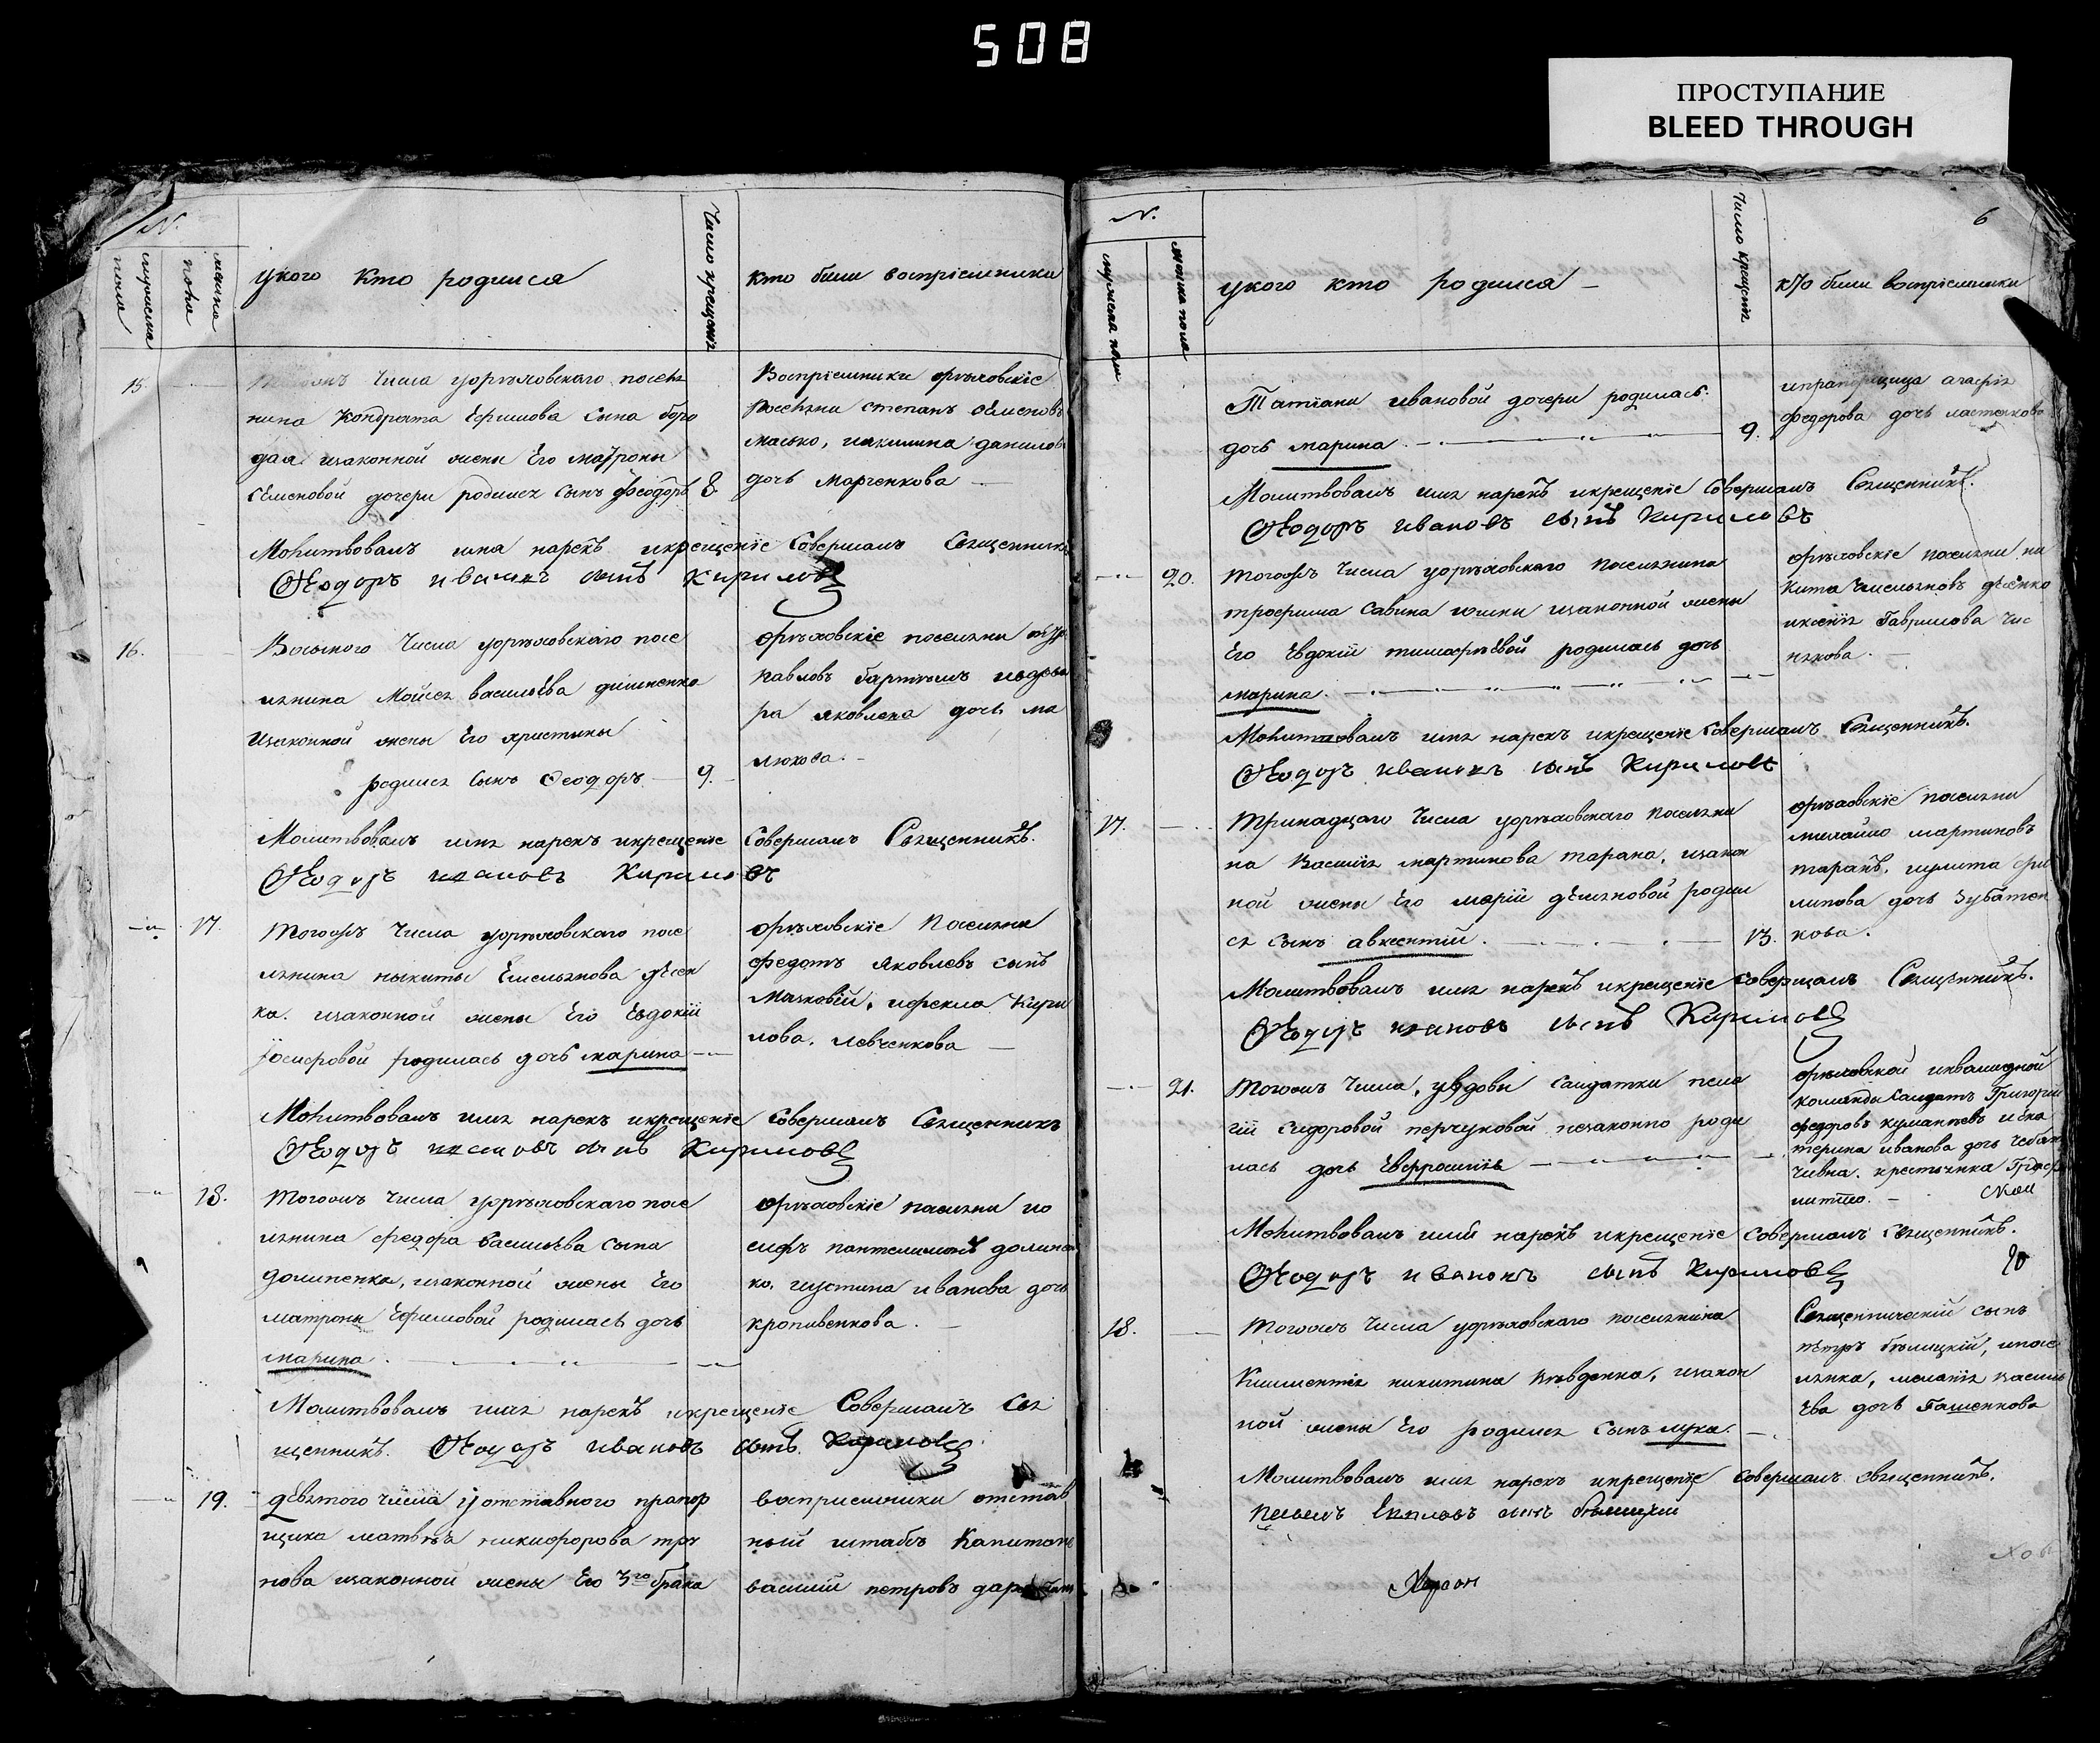 508
ПРОСТУПАНИЕ
BLEED THROUGH
N.
мужеска пола
женска пола
укого кто родился
Число крещенія
кто были воспріемники
15.
числа уорѣховскаго поселя
нина Кондрата Ефимова сына боро
дая изаконной жены Его матроны
Семеновой дочери родился сынъ Феодоръ 8.
Воспріемники орѣховскіе
Поселяни степанъ семеновъ
масько, иакилина данилов
дочь марченкова
Молитвовалъ имя нарекъ икрещеніе Совершалъ Священникъ
Ѳеодоръ ивановъ сынъ Кириловъ
16.
Восмого числа уорѣховскаго посе
лянина Мойсея васильева дишненка
изаконной жены Его христины
родился сынъ Ѳеодоръ 9.
орѣховскіе поселяни
павловъ
ра яковлева дочь ма
люкова.
Молитвовалъ имя нарекъ икрещеніе Совершалъ Священникъ.
Ѳеодоръ ивановъ Кириловъ
17.
Тогожъ числа уорѣховскаго посе
лянина никиты Емельянова дѣен
ка. изаконной жены Его Евдокіи
Іосифовой родилась дочь марина
орѣховскіе Поселяни
федотъ яковлевъ сынъ
Мачковій, ифекла Кири
лова, левченкова
Молитвовалъ имя нарекъ икрещеніе совершалъ Священникъ
Ѳеодоръ ивановъ сынъ Кириловъ
18.
Тогожъ числа уорѣховскаго посе
лянина федора васильева сына
долиненка, изаконной жены Его
матроны Ефимовой родилась дочь
марина.
орѣховскіе поселяни ио
сифъ пантелимонъ долинен
ко, иустина иванова дочь
кропивенкова.
Молитвовалъ имя нарекъ икрещеніе Совершалъ Свя
щенникъ. Ѳеодоръ ивановъ сынъ Кириловъ
19.
девятого числа уотставного прапор
щика матвѣя никифорова тру
нова изаконной жены Его 3го брака
восприемники отстав
ный штабъ Капитанъ
василий петровъ
6
N.
мужеска пола
женска пола
укого кто родился
Число крещенія
кто были воспріемники
Татіани ивановой дочери родилась
дочь марина. 9.
ипрапорщица агафія
федорова дочь
Молитвовалъ имя нарекъ икрещеніе Совершалъ Священникъ.
Ѳеодоръ ивановъ сынъ Кириловъ
20.
Тогожъ числа уорѣховскаго поселянина
трофима Савина изаконной жены
Его Евдокіи тимофѣевой родилась дочь
марина.
орѣховскіе поселяни ни
кита Емельяновъ дѣенко
иксенія Гаврилова
нкова.
Молитвовалъ имя нарекъ икрещеніе совершалъ Священникъ.
Ѳеодоръ ивановъ сынъ Кириловъ
17.
Тринадцаго числа уорѣховскаго поселяни
на Василія мартинова тарана, изакон
ной жены Его маріи демяновой родил
ся сынъ авксентій. 13.
орѣховскіе поселяни
михайло мартиновъ
таранъ, иулита фи
липова дочь зубатен
кова.
Молитвовалъ имя нарекъ икрещеніе совершалъ Священникъ.
Ѳеодоръ ивановъ сынъ Кириловъ
21.
Тогожъ числа, увдовы салдатки пела
гіи Сидоровой перчуковой незаконно роди
лась дочь Евфросинія
орѣховской инвалидной
команды Салдатъ Григорій
федоровъ куманневъ иека
терина иванова дочь
Молитвовалъ имя нарекъ икрещеніе совершалъ священникъ.
Ѳеодоръ ивановъ сынъ Кириловъ
18.
Тогожъ числа уорѣховскаго поселянина
Климентія никитина вовденка, изакон
ной жены Его родился сынъ лука.
Священническій сынъ
петръ бѣлицкій, ипосе
лянка, меланія василь
ева дочь Гашенкова
Молитвовалъ имя нарекъ икрещеніе совершалъ священникъ.
Херсон